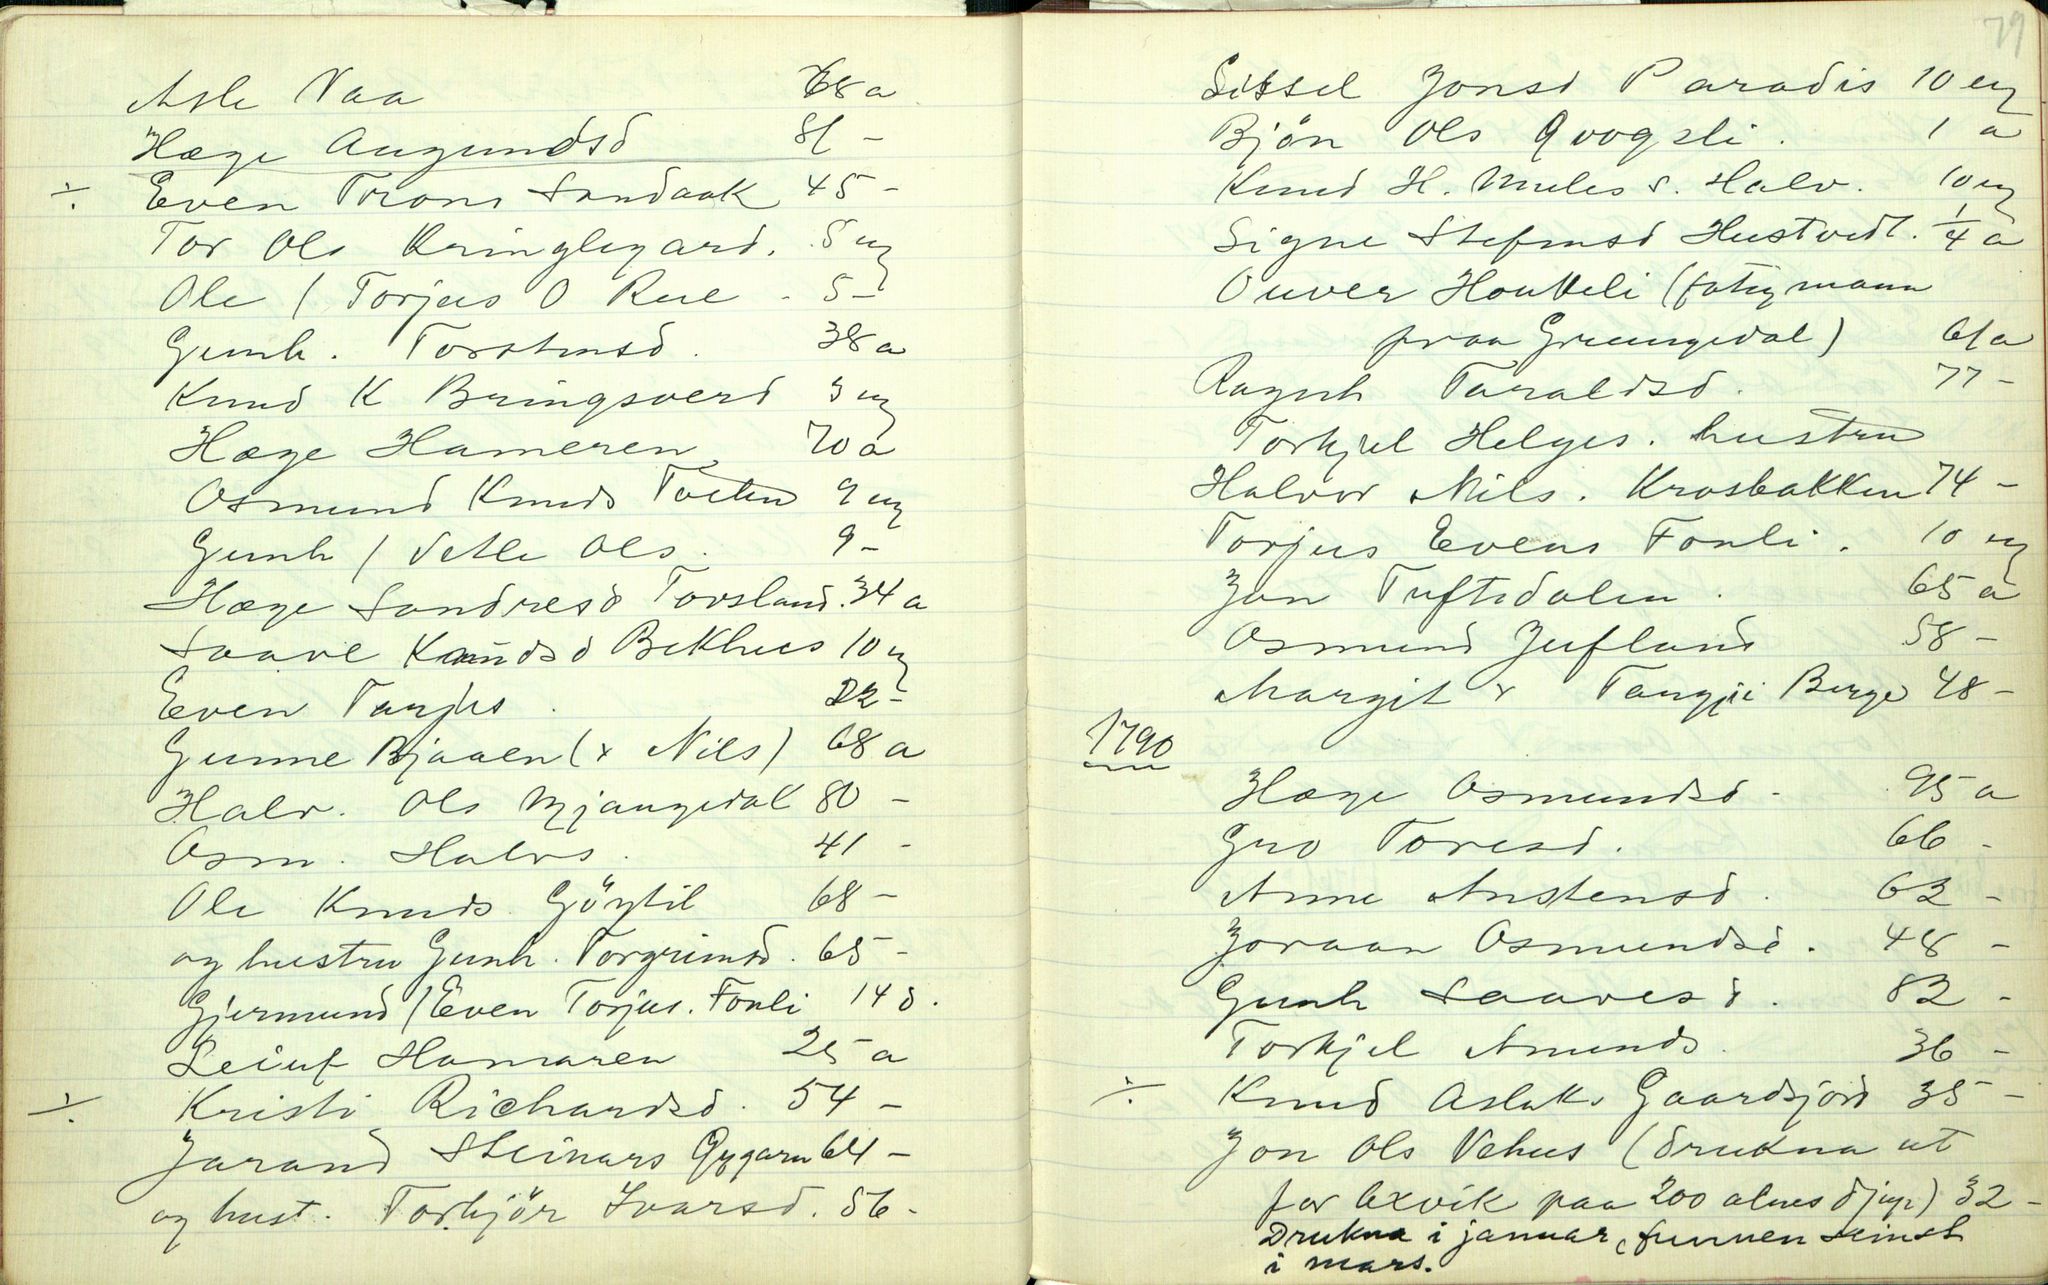 Asle Naa 68 a
Hæge Augundsd 81 -
÷ Even Trons Sandaak 45 -
Tor Ols Kringlegard. 5 ug
Ole / Torjus O Rue - 5 -
Gunh. Torstensd. 38 a
Knud K Bringsverd 3 ug
Hæge Hameren 70 a
Osmund Knuds 9 ug
Gunh / Vetle Ols. 9 -
Hæge Sondresd Torsland. 34 a
Saave Knudsd Bekhus 10 ug
Even Tarjus. 22 -
Gunne Bjaaen (x Nils) 68 a
Halv. Ols Mjaugedal 80 -
Osm. Halvs. 41 -
Ole Knuds Göytil 68 -
og hustru Gunh. Torgrimsd. 65 -
Gjermund / Even Torjus. Fonli 14 d.
Leiuf Hamaren 25 a
÷ Kristi Richardsd. 54 -
Jorand Steinars Gygarn 64 -
og hust. Torbjör Ivarsd. 56 -
79
Sissel Jonsd Paradis 10 ug
Bjön Ols Qvogsli. 1 a
Knud H. Mules s. Halv. 10 ug
Signe Stefensd Hustvedt. 1/4 a
Ouver Houkeli (fatigmann
fraa Grungedal) 61 a
Ragnh Taraldsd. 77 -
Torkjel Helges. hustru
Halvor Nils. Krosbakken 74 -
Torjus Evens Fonli. 10 ug
Jon Tuftedalen. 65 a
Osmund Jufland 58 -
Margit x Tangji Berge 48 -
1790
Hæge Osmundsd - 95 a
Gro Toresd. 66 -
Anne Anstensd. 63 -
Joraan Osmundsd. 48 -
Gunh Saavesd. 82 -
Torkjel Amunds. 36 -
÷ Knud Aslaks Gaardsjord 35 -
Jon Ols Vehus (drukna ut
for Oxvik paa 200 alnes djup) 32 -
Drukna i januar, funnen seinst
i mars.